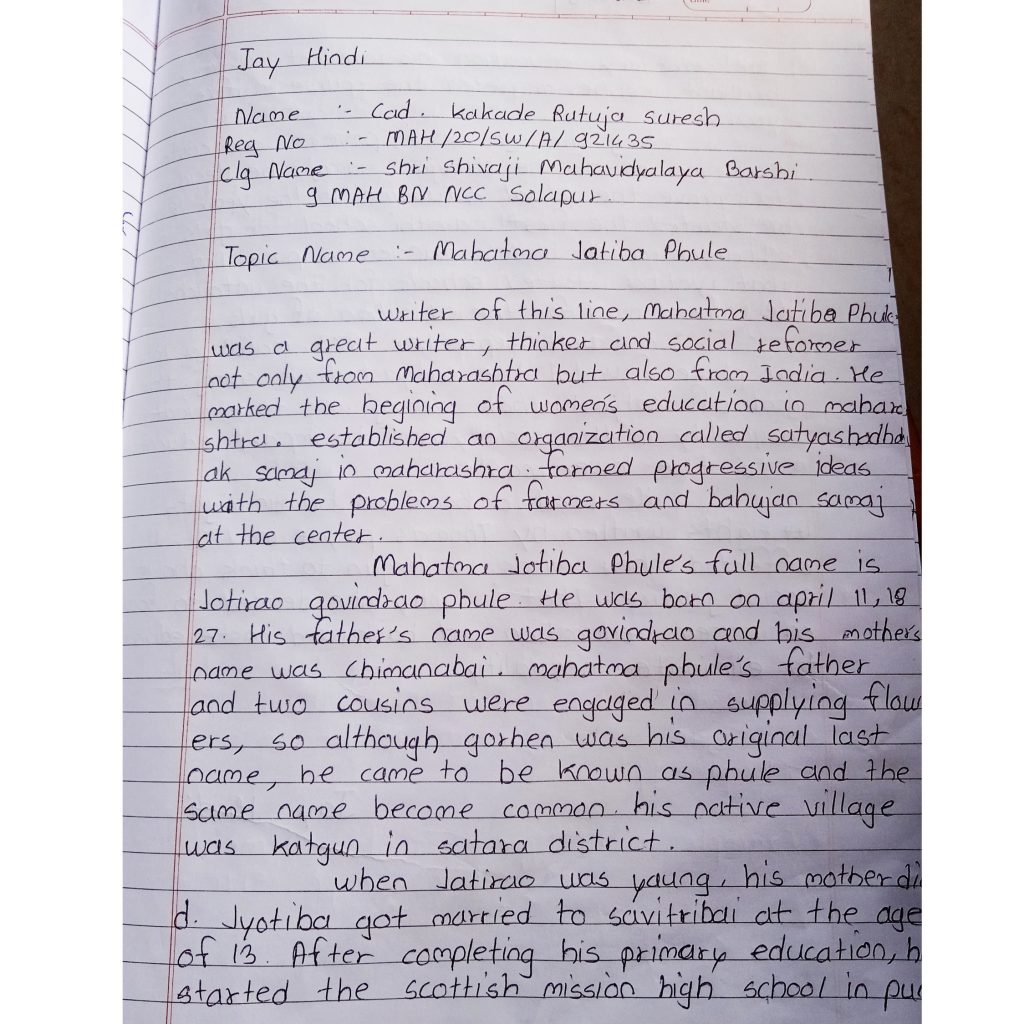 Jay Hindi
Name :- Cad. Kakade Rutuja suresh
Reg No :- MAH/20/SW/A/921435
clg Name :- shri shivaji Mahavidyalaya Barshi.
9 MAH BN NCC Solapur.
Topic Name :- Mahatma Jotiba Phule
writer of this line, Mahatma Jotiba Phule
was a great writer, thinker and social reformer
not only from Maharashtra but also from India. He
marked the begining of women's education in mahara
shtra. established an organization called satyashodha
ak samaj in maharashra. formed progressive ideas
with the problems of farmers and bahujan samaj
at the center.
Mahatma Jotiba Phule's full name is
Jotirao govindrao phule. He was born on april 11, 18
27. His father's name was govindrao and his mother's
name was Chimanabai. mahatma phule's father
and two cousins were engaged in supplying flow
ers, so although gorhen was his original last
name, he came to be known as phule and the
same name become common. his native village
was katgun in satara district.
when Jatirao was young, his mother di
d. Jyotiba got married to savitribai at the age
of 13. After completing his primary education, h
started the scottish mission high school in pu